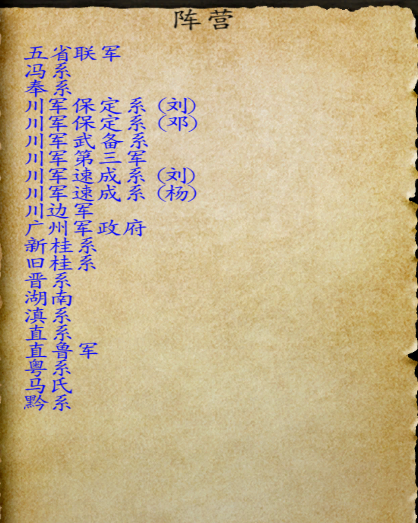 阵营
五省联军
冯系
奉系
川军保定系(刘)
川军保定系(邓)
川军武备系
川军第三军
川军速成系(刘)
川军速成系(杨)
川边军
广州军政府
新桂系
旧桂系
晋系
湖南
滇系
直系
直鲁军
粤系
马氏
黔系